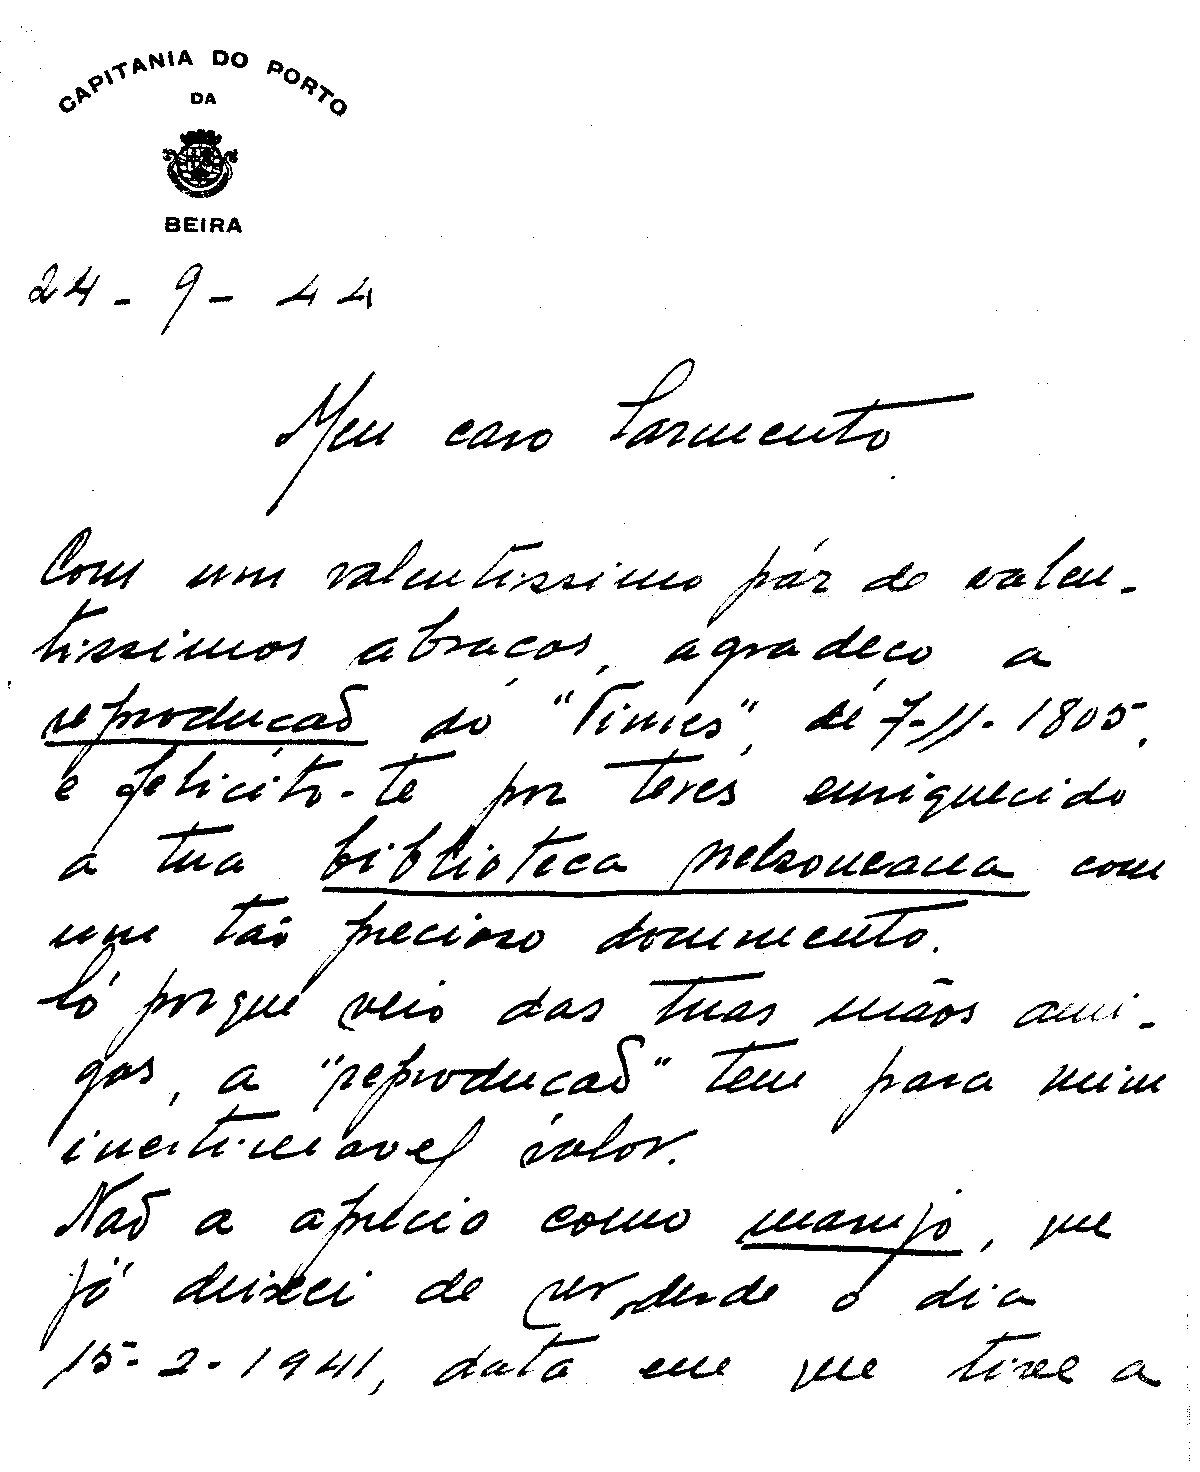 CAPITANIA DO PORTO
DA
BEIRA
24-9-44
Meu caro Sarmento
Com um valentissimo pár de valen-
tissimos abraços, agradeço a
reprodução do "Times", de 7-11-1805,
e felicito-te por teres enriquecido
a tua biblioteca nelsoneana com
um tão precioso documento.
Só porque veio das tuas mãos ami-
gas, a "reprodução" tem para mim
inestimavel valor.
Não a aprecio como marujo, que
já deixei de ser, desde o dia
15-2-1941, data em que tive a